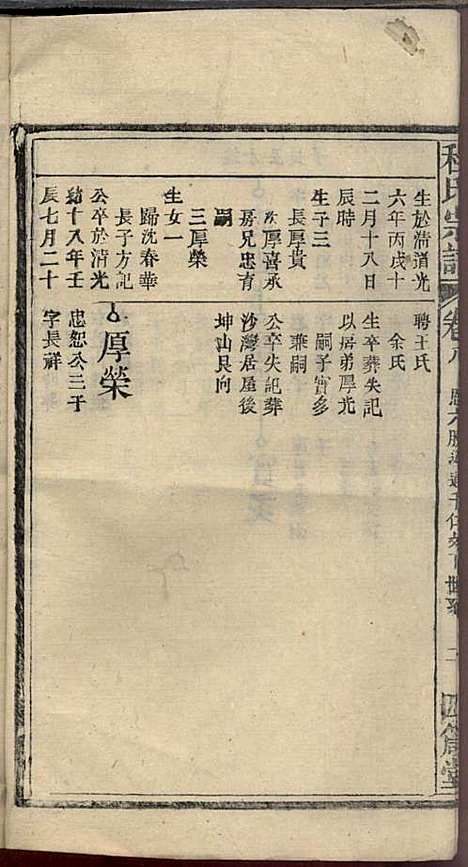 程氏宗譜 卷八
生於清道光
六年丙戌十
二月十八日
辰時
生子三
長厚貴
次厚喜承
房兄忠育
嗣
三厚榮
生女一
歸沈春華
長子方記
公卒於清光
緒十八年壬
辰七月二十
聘王氏
余氏
生卒葬失記
以房弟厚光
嗣子實多
兼嗣
公卒失記葬
沙灣居屋後
坤山艮向
厚榮
忠恕公三子
字長祥